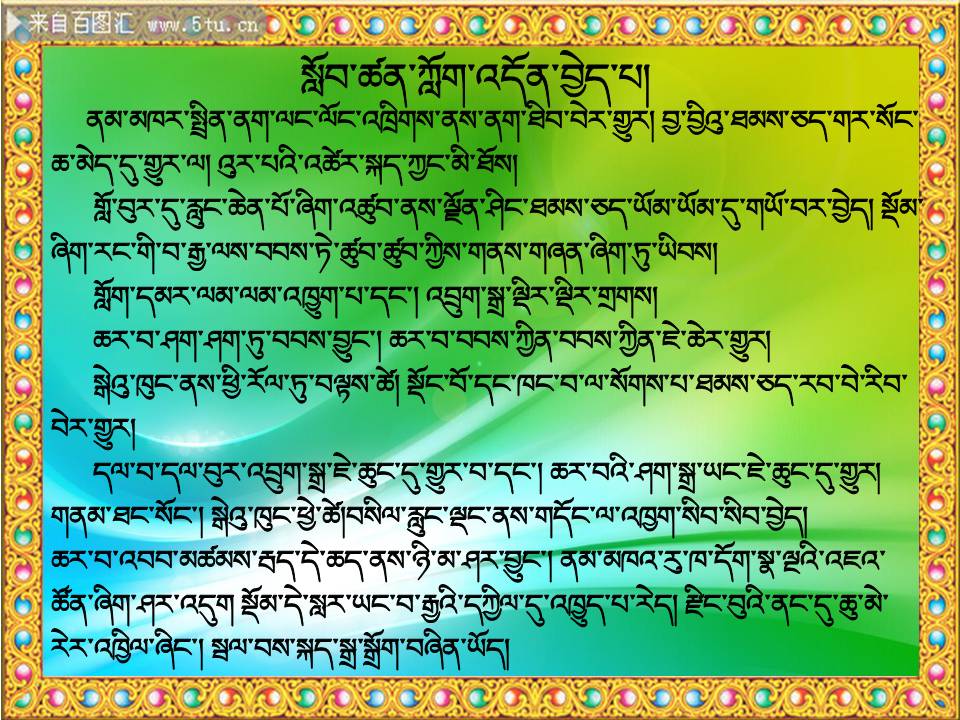 来自百图汇 www.5tu.cn
སློབ་ཚན་ཀློག་འདོན་བྱེད་པ།
ནམ་མཁར་སྤྲིན་ནག་ལང་ལོང་འཁྲིགས་ནས་ནག་ཐིབ་བེར་གྱུར། བྱ་བྱིའུ་ཐམས་ཅད་གར་སོང་
ཆ་མེད་དུ་གྱུར་ལ། འུར་པའི་འཚེར་སྐད་ཀྱང་མི་ཐོས།
གློ་བུར་དུ་རླུང་ཆེན་པོ་ཞིག་འཚུབ་ནས་ལྗོན་ཤིང་ཐམས་ཅད་ཡོམ་ཡོམ་དུ་གཡོ་བར་བྱེད། སྡོམ་
ཞིག་རང་གི་བ་རྒྱ་ལས་བབས་ཏེ་ཚུབ་ཚུབ་ཀྱིས་གནས་གཞན་ཞིག་ཏུ་ཡིབས།
གློག་དམར་ལམ་ལམ་འཁྱུག་པ་དང་། འབྲུག་སྒྲ་ལྡིར་ལྡིར་གྲགས།
ཆར་བ་ཤག་ཤག་ཏུ་བབས་བྱུང་། ཆར་བ་བབས་ཀྱིན་བབས་ཀྱིན་ཇེ་ཆེར་གྱུར།
སྒེའུ་ཁུང་ནས་ཕྱི་རོལ་ཏུ་བལྟས་ཚེ། སྡོང་པོ་དང་ཁང་བ་ལ་སོགས་པ་ཐམས་ཅད་རབ་བེ་རིབ་
བེར་གྱུར།
དལ་བ་དལ་བུར་འབྲུག་སྒྲ་ཇེ་ཆུང་དུ་གྱུར་བ་དང་། ཆར་བའི་ཤག་སྒྲ་ཡང་ཇེ་ཆུང་དུ་གྱུར།
གནམ་ཐང་སོང་། སྒེའུ་ཁུང་ཕྱེ་ཚེ།བསིལ་རླུང་ལྡང་ནས་གདོང་ལ་འཁྱག་སིབ་སིབ་བྱེད།
ཆར་བ་འབབ་མཚམས་རྦད་དེ་ཆད་ནས་ཉི་མ་ཤར་བྱུང་། ནམ་མཁའ་རུ་ཁ་དོག་སྣ་ལྔའི་འཇའ་
ཚོན་ཞིག་ཤར་འདུག སྡོམ་དེ་སླར་ཡང་བ་རྒྱའི་དཀྱིལ་དུ་འཁྱུད་པ་རེད། རྫིང་བུའི་ནང་དུ་ཆུ་མེ་
རེར་འཁྱིལ་ཞིང་། སྦལ་བས་སྐད་སྒྲ་སྒྲོག་བཞིན་ཡོད།